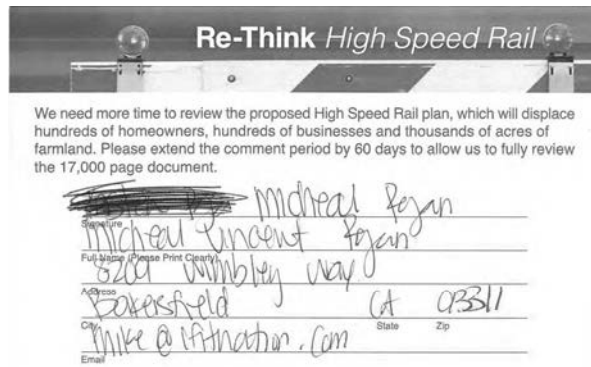 Re-Think High Speed Rail
We need more time to review the proposed High Speed Rail plan, which will displace
hundreds of homeowners, hundreds of businesses and thousands of acres of
farmland. Please extend the comment period by 60 days to allow us to fully review
the 17,000 page document.
Micheal
Signature
Micheal Vincent
Full Name (Please Print Clearly)
8209 Way
Address
Bakersfield CA 93311
City State Zip
Email